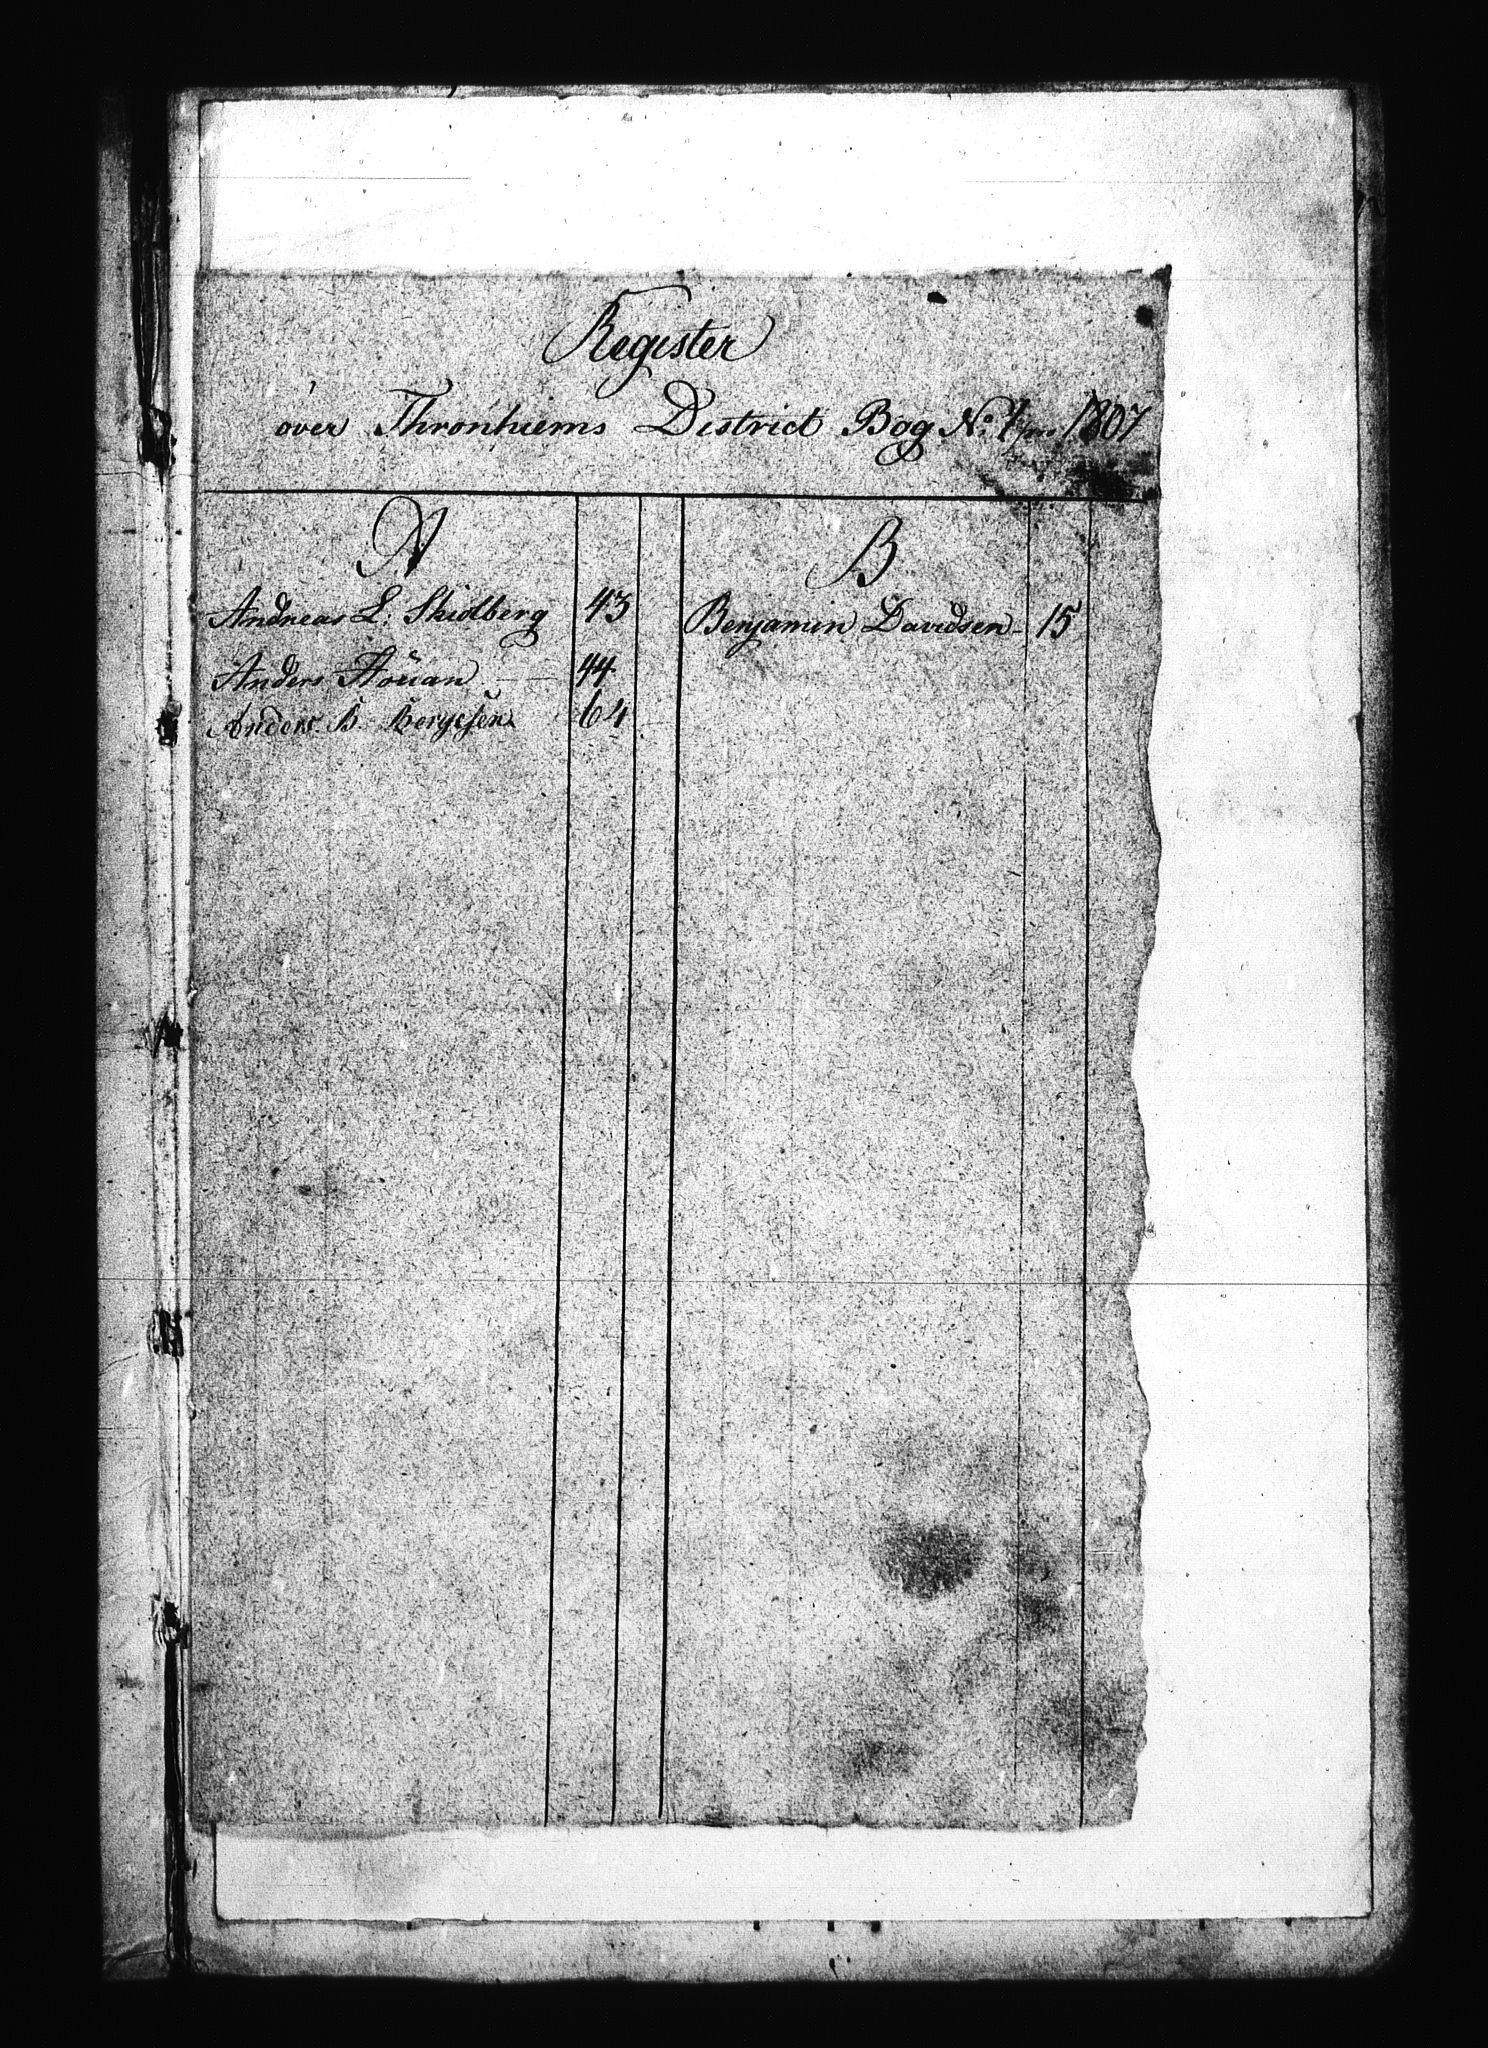 Register
over Thronhiems District Bog No. 1 pro 1807
A
Andreas L. Skidlberg 43
Anders 44
Anders B. Bergesen 64
B
Benjamin Davidsen 15